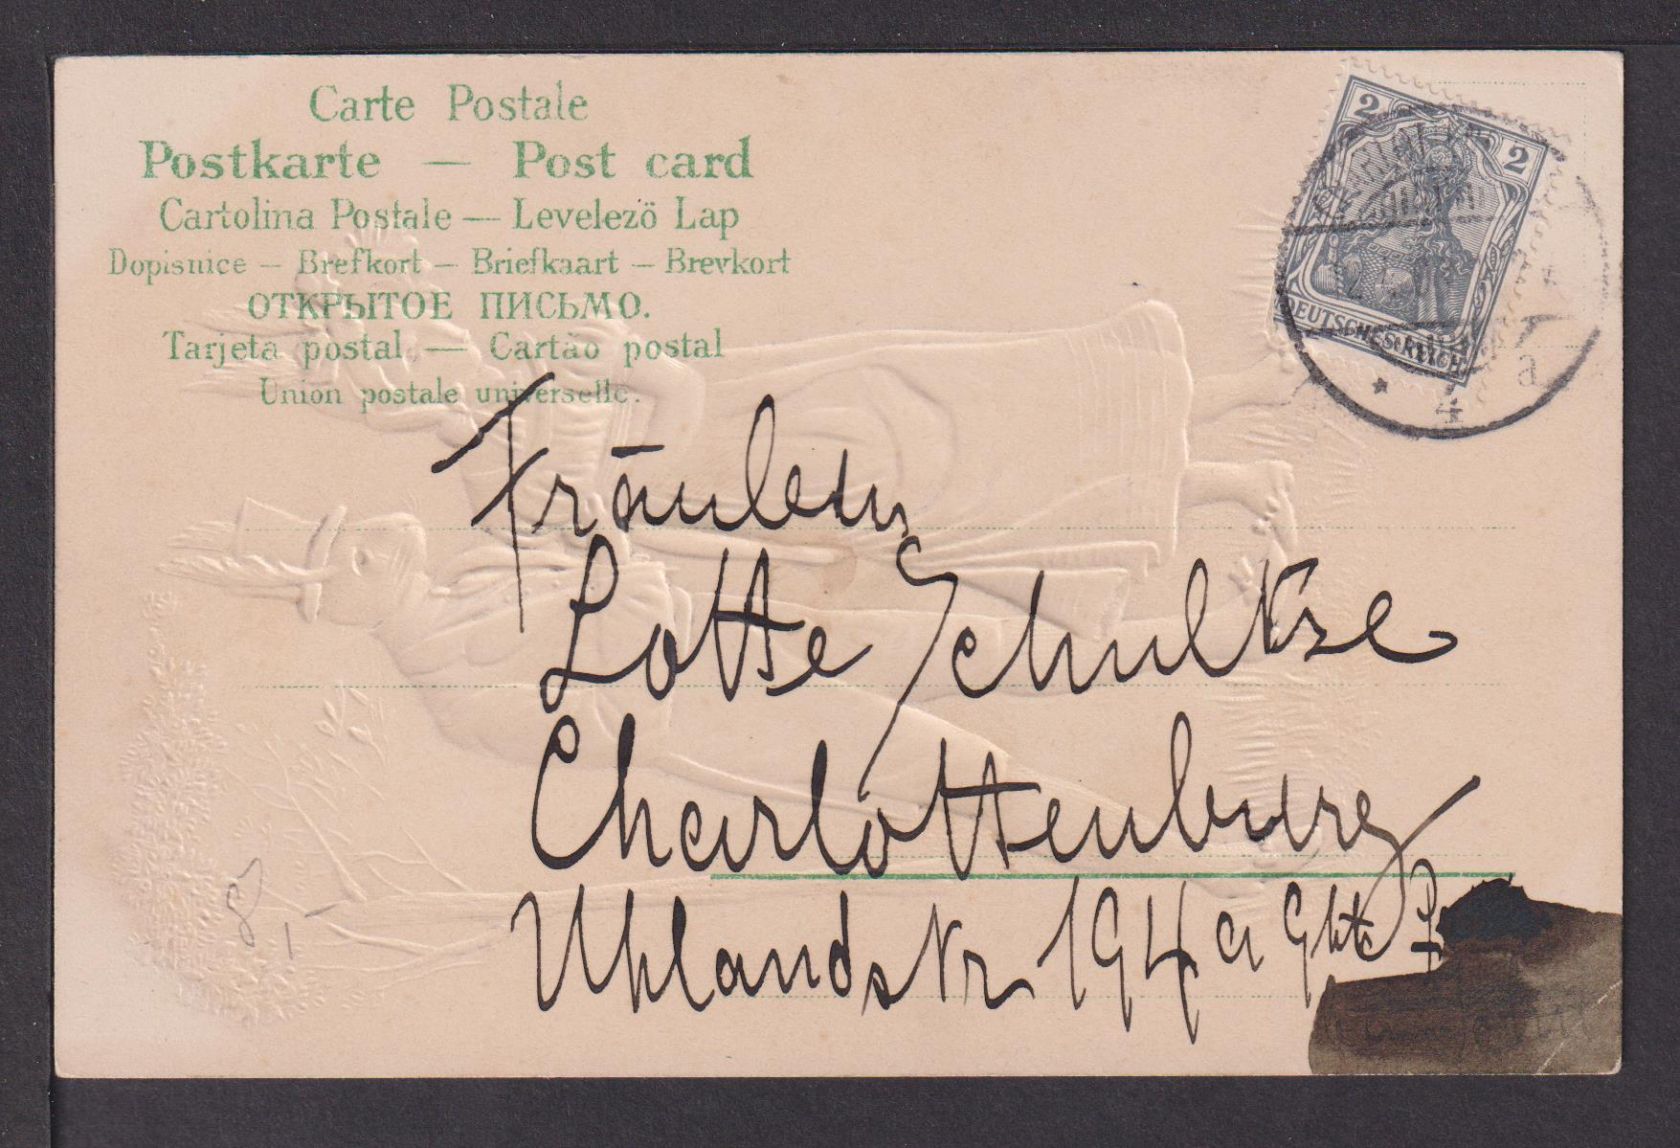 Carte Postale
Postkarte — Post card
Cartolina Postale — Levelezö Lap
Dopisnice — Brefkort — Briefkaart — Brevkort
ОТКРЫТОЕ ПИСЬМО.
Tarjeta postal — Cartão postal
Union postale universelle.
2 2
DEUTSCHES REICH
* 4 a
Fräulein
Lotte Schultze
Charlottenburg
Uhlandstr 194 a